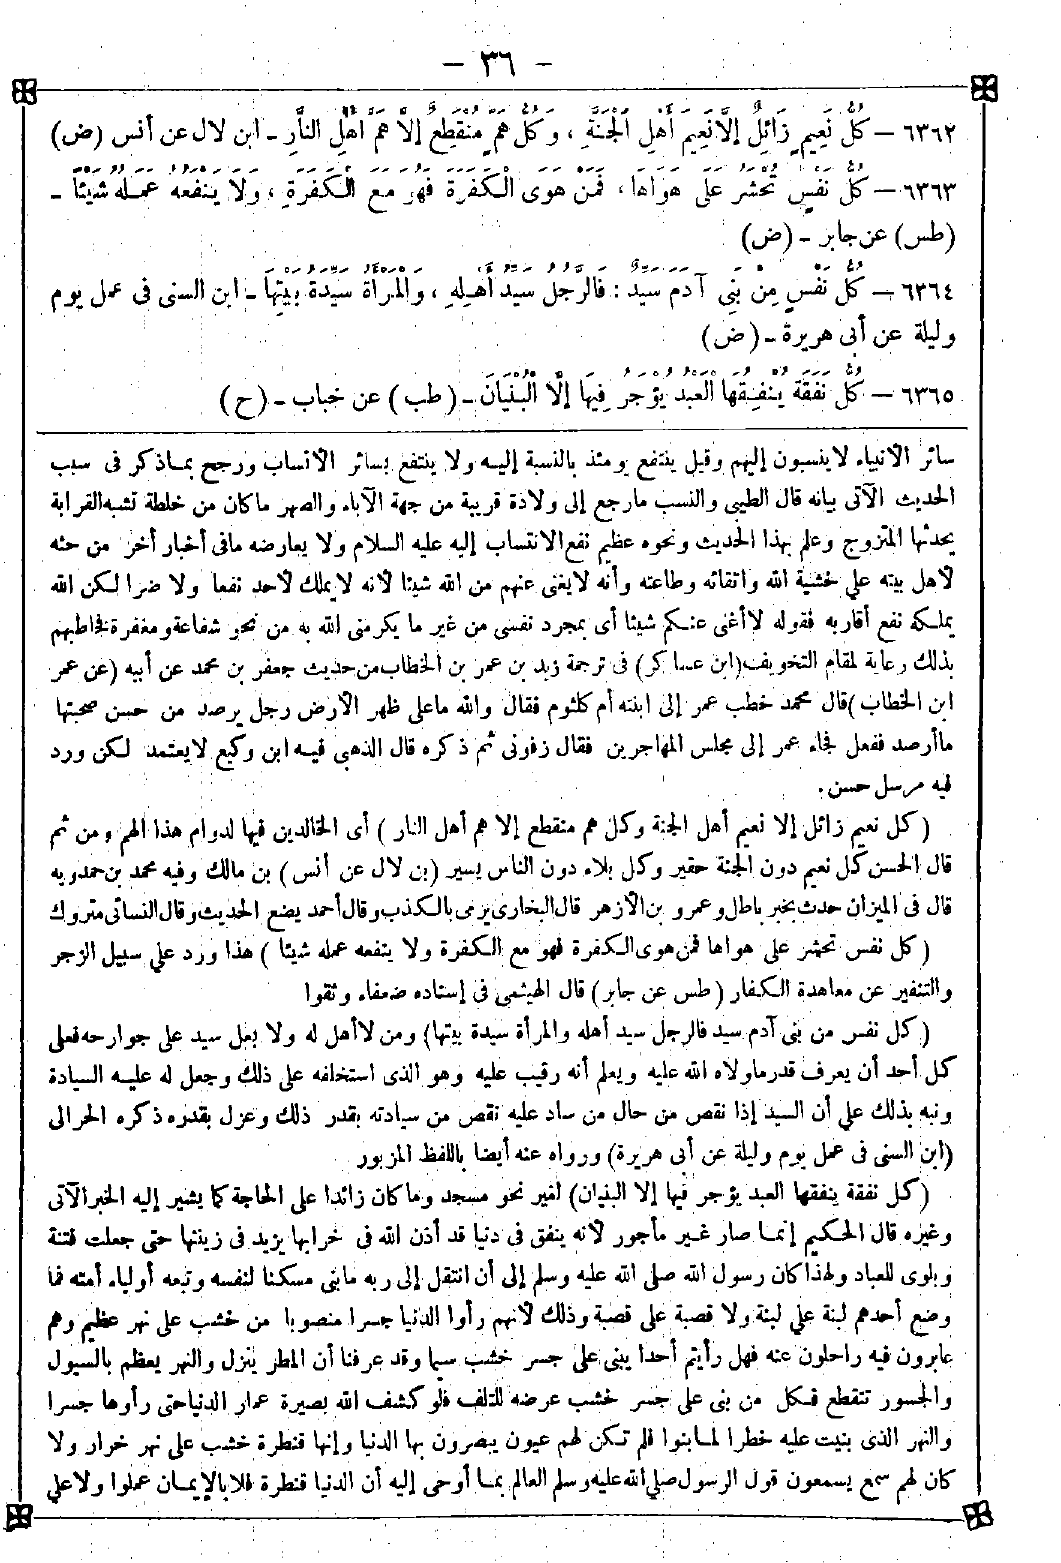 - ٣٦ -
٦٣٦٢ - كُلُّ نَعِيمٍ زَائِلٌ إِلَّا نَعِيمَ أَهْلِ الْجَنَّةِ ، وَكُلُّ هَمٍّ مُنْقَطِعٌ إِلَّا هَمَّ أَهْلِ النَّارِ - ابن لال عن أنس (ض)
٦٣٦٣ - كُلُّ نَفْسٍ تُحْشَرُ عَلَى هَوَاهَا ، فَمَنْ هَوَى الْكَفَرَةَ فَهُوَ مَعَ الْكَفَرَةِ ، وَلَا يَنْفَعُهُ عَمَلُهُ شَيْئًا -
(طس) عن جابر - (ض)
٦٣٦٤ - كُلُّ نَفْسٍ مِنْ بَنِي آدَمَ سَيِّدٌ : فَالرَّجُلُ سَيِّدُ أَهْلِهِ ، وَالْمَرْأَةُ سَيِّدَةُ بَيْتِهَا - ابن السنى فى عمل يوم
وليلة عن أبى هريرة - (ض)
٦٣٦٥ - كُلُّ نَفَقَةٍ يُنْفِقُهَا الْعَبْدُ يُؤْجَرُ فِيهَا إِلَّا الْبُنْيَانَ - (طب) عن خباب - (ح)
سائر الأنبياء لا ينسبون إليهم وقيل ينتفع يومئذ بالنسبة إليه ولا ينتفع بسائر الأنساب ورجح بما ذكر فى سبب
الحديث الآتى بيانه قال الطيبى والنسب مارجع إلى ولادة قريبة من جهة الآباء والصهر ما كان من خلطة تشبه القرابة
يحدثها التزوج وعلم بهذا الحديث ونحوه عظيم نفع الانتساب إليه عليه السلام ولا يعارضه مافى أخبار أخر من حثه
لأهل بيته على خشية الله واتقائه وطاعته وأنه لايغنى عنهم من الله شيئا لأنه لا يملك لأحد نفعا ولا ضرا لكن الله
يملكه نفع أقاربه فقوله لا أغنى عنكم شيئا أى بمجرد نفسى من غير ما يكرمنى الله به من نحو شفاعة ومغفرة فخاطبهم
بذلك رعاية لمقام التخويف (ابن عساكر) فى ترجمة زيد بن عمر بن الخطاب من حديث جعفر بن محمد عن أبيه (عن عمر
ابن الخطاب) قال محمد خطب عمر إلى ابنته أم كلثوم فقال والله ماعلى ظهر الأرض رجل يرصد من حسن صحبتها
ما أرصد ففعل فجاء عمر إلى مجلس المهاجرين فقال زفونى ثم ذكره قال الذهبى فيه ابن وكيع لا يعتمد لكن ورد
فيه مرسل حسن .
(كل نعيم زائل إلا نعيم أهل الجنة وكل هم منقطع إلا هم أهل النار) أى الخالدين فيها لدوام هذا الهم ومن ثم
قال الحسن كل نعيم دون الجنة حقير وكل بلاء دون الناس يسير (بن لال عن أنس) بن مالك وفيه محمد بن حمدويه
قال فى الميزان حدث بخبر باطل وعمرو بن الأزهر قال البخارى يرمى بالكذب وقال أحمد يضع الحديث وقال النسائى متروك
(كل نفس تحشر على هواها فمن هوى الكفرة فهو مع الكفرة ولا ينفعه عمله شيئا) هذا ورد على سبيل الزجر
والتنفير عن معاهدة الكفار (طس عن جابر) قال الهيثمى فى إسناده ضعفاء وثقوا
(كل نفس من بنى آدم سيد فالرجل سيد أهله والمرأة سيدة بيتها) ومن لا أهل له ولا بعل سيد على جوارحه فعلى
كل أحد أن يعرف قدر ماولاه الله عليه ويعلم أنه رقيب عليه وهو الذى استخلفه على ذلك وجعل له عليه السيادة
ونبه بذلك على أن السيد إذا نقص من حال من ساد عليه نقص من سيادته بقدر ذلك وعزل بقدره ذكره الحرالى
(ابن السنى فى عمل يوم وليلة عن أبى هريرة) ورواه عنه أيضا باللفظ المزبور
(كل نفقة ينفقها العبد يؤجر فيها إلا البنيان) لغير نحو مسجد وما كان زائدا على الحاجة كما يشير إليه الخبر الآتى
وغيره قال الحكيم إنما صار غير مأجور لأنه ينفق فى دنيا قد أذن الله فى خرابها يزيد فى زينتها حتى جعلت فتنة
وبلوى للعباد ولهذا كان رسول الله صلى الله عليه وسلم إلى أن انتقل إلى ربه مابنى مسكنا لنفسه وتبعه أولياء أمته فما
وضع أحدهم لبنة على لبنة ولا قصبة على قصبة وذلك لأنهم رأوا الدنيا جسرا منصوبا من خشب على نهر عظيم وهم
عابرون فيه راحلون عنه فهل رأيتم أحدا يبنى على جسر خشب سيما وقد عرفنا أن المطر ينزل والنهر يعظم بالسيول
والجسور تنقطع فكل من بنى على جسر خشب عرضه للتلف فلو كشف الله بصيرة عمار الدنيا حتى رأوها جسرا
والنهر الذى بنيت عليه خطرا لما بنوا فلم تكن لهم عيون يبصرون بها الدنيا وإنها قنطرة خشب على نهر خرار ولا
كان لهم سمع يسمعون قول الرسول صلى الله عليه وسلم العالم بما أوحى إليه أن الدنيا قنطرة فلا بالإيمان عملوا ولا على